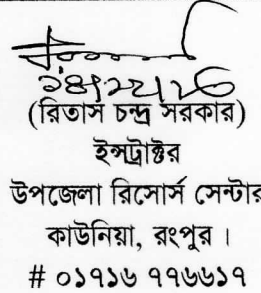 (রিতার্স চন্দ্র সরকার)
ইন্সট্রাক্টর
উপজেলা রিসোর্স সেন্টার
কাউনিয়া, রংপুর ।
# ০১৭১৬ ৭৭৬৬১৭